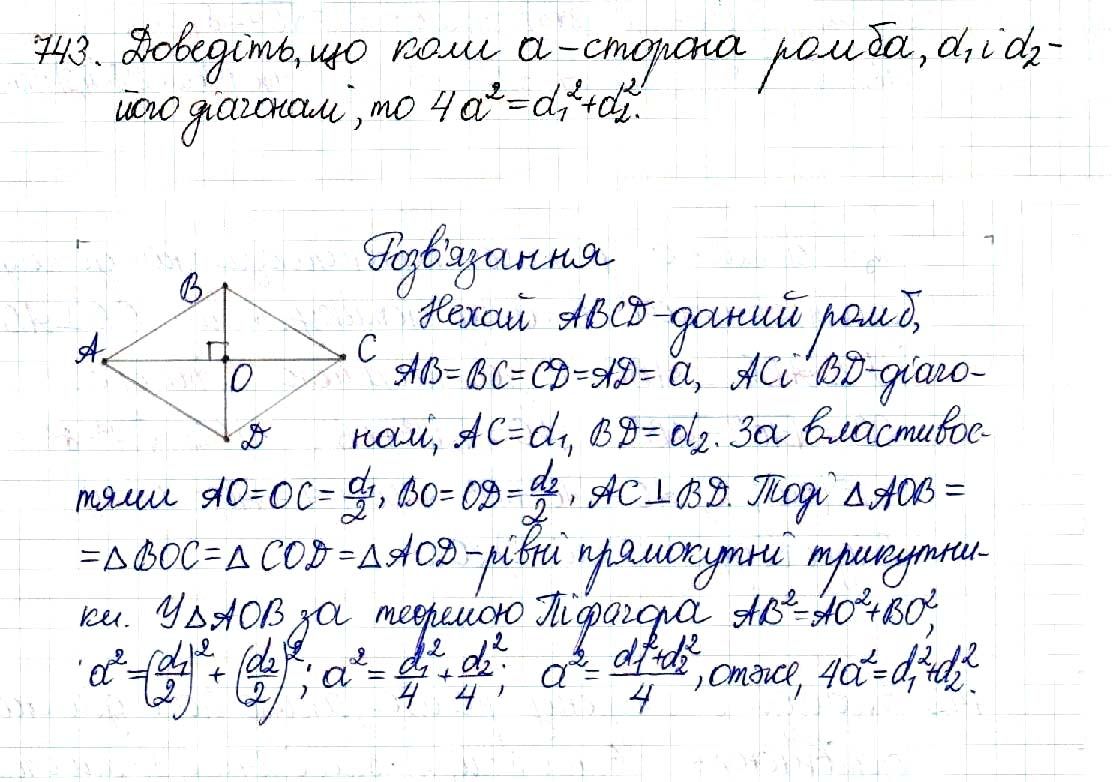 743. Доведіть, що коли a – сторона ромба, d₁ і d₂ –
його діагоналі, то 4a² = d₁² + d₂².
Розв'язання
B
A
C
O
D
Нехай ABCD – даний ромб,
AB = BC = CD = AD = a, AC і BD – діаго-
налі, AC = d₁, BD = d₂. За властивос-
тями AO = OC = d₁/2, BO = OD = d₂/2, AC ⊥ BD. Тоді △AOB =
= △BOC = △COD = △AOD – рівні прямокутні трикутни-
ки. У △AOB за теоремою Піфагора AB² = AO² + BO²,
a² = (d₁/2)² + (d₂/2)²; a² = d₁²/4 + d₂²/4; a² = (d₁² + d₂²)/4, отже, 4a² = d₁² + d₂².